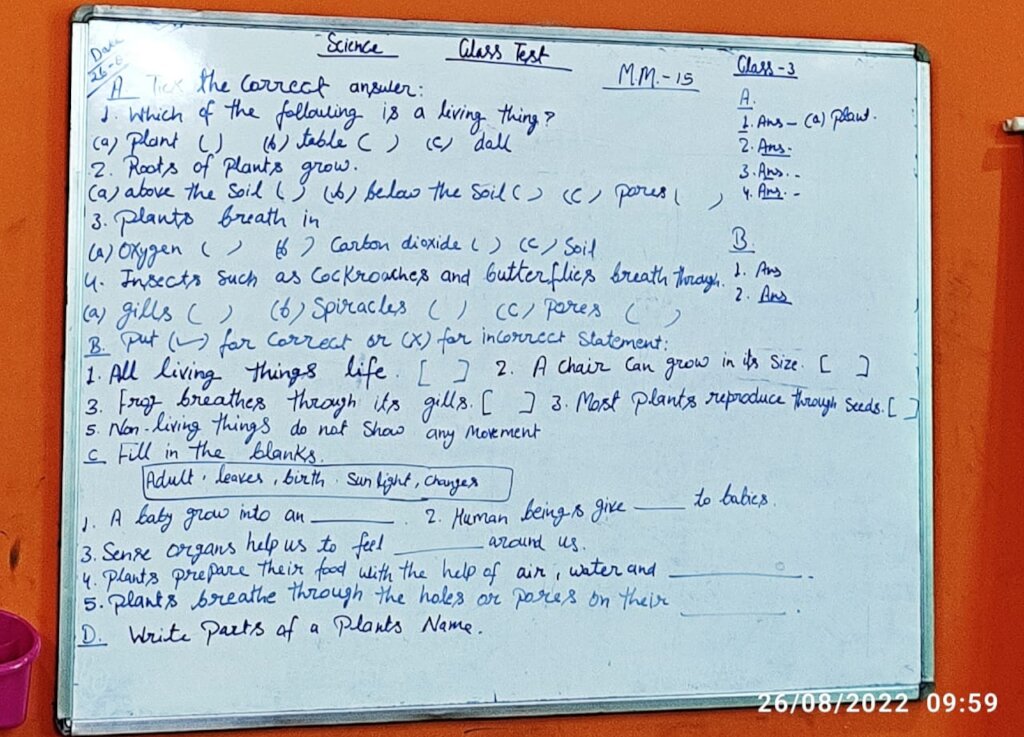 Date
26-8
Science Class Test
M.M.-15
Class-3
A. Tick the Correct answer:
1. Which of the following is a living thing?
(a) plant ( ) (b) table ( ) (c) doll
2. Roots of plants grow.
(a) above the Soil ( ) (b) below the Soil ( ) (c) pores ( )
3. plants breath in
(a) Oxygen ( ) (b) Carbon dioxide ( ) (c) Soil
4. Insects Such as Cockroaches and butterflies breath through.
(a) gills ( ) (b) Spiracles ( ) (c) Pores ( )
B. Put (✓) for Correct or (X) for incorrect Statement:
1. All living things life. [ ] 2. A Chair Can grow in its Size. [ ]
3. Frog breathes through its gills. [ ] 3. Most plants reproduce through Seeds. [ ]
5. Non-living things do not Show any Movement
C Fill in the blanks.
Adult, leaves, birth, Sunlight, Changes
1. A baby grow into an ________. 2. Human beings give ____ to babies.
3. Sense organs help us to feel ________ around us.
4. Plants prepare their food with the help of air, water and ________.
5. plants breathe through the holes or pores on their ________.
D. Write Parts of a Plants Name.
A.
1. Ans - (a) plant.
2. Ans.
3. Ans. -
4. Ans. -
B.
1. Ans
2. Ans
26/08/2022 09:59